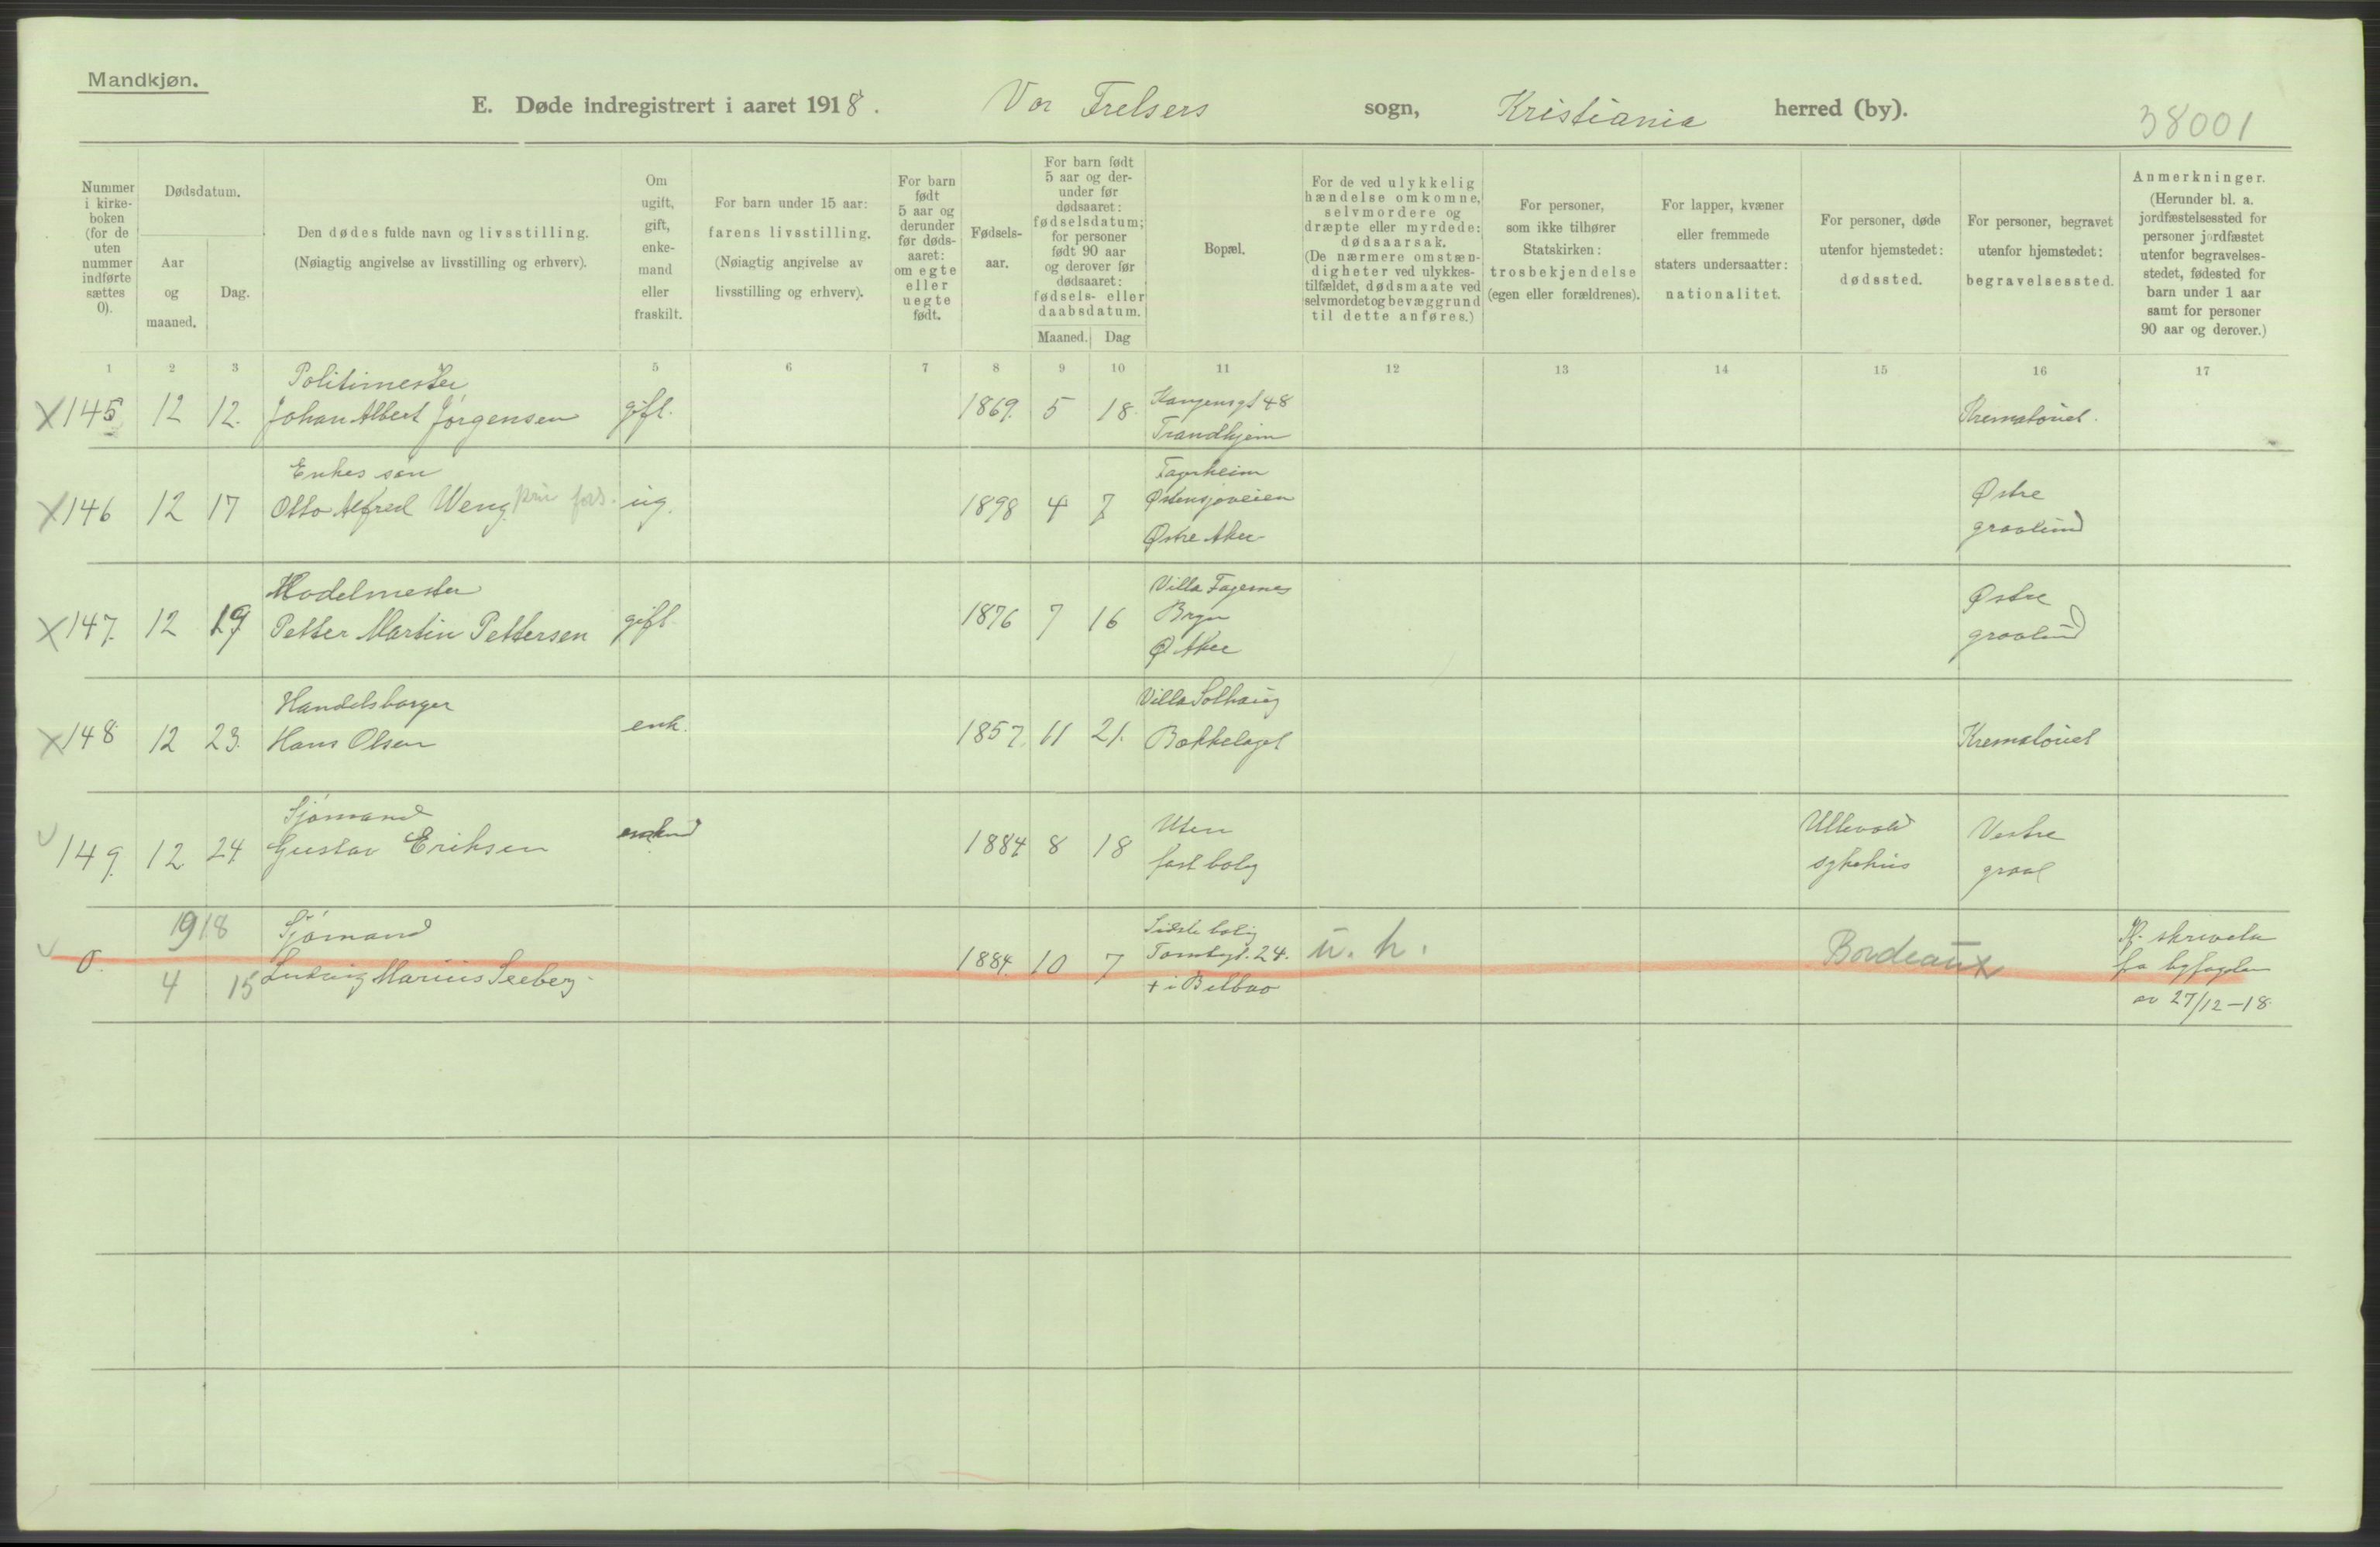 Mandkjøn.
E. Døde indregistrert i aaret 1918. Vor Frelsers sogn, Kristiania herred (by).
38001
Nummer
i kirke-
boken
(for de
uten
nummer
indførte
sættes
0).
Dødsdatum.
Aar
og
maaned.
Dag.
Den dødes fulde navn og livsstilling.
(Nøiagtig angivelse av livsstilling og erhverv).
Om
ugift,
gift,
enke-
mand
eller
fraskilt.
For barn under 15 aar:
farens livsstilling.
(Nøiagtig angivelse av
livsstilling og erhverv).
For barn
født
5 aar og
derunder
før døds-
aaret:
om egte
eller
uegte
født.
Fødsels-
aar.
For barn født
5 aar og der-
under før
dødsaaret:
fødselsdatum;
for personer
født 90 aar
og derover før
dødsaaret:
fødsels- eller
daabsdatum.
Maaned. Dag
Bopæl.
For de ved ulykkelig
hændelse omkomne,
selvmordere og
dræpte eller myrdede:
dødsaarsak.
(De nærmere omstæn-
digheter ved ulykkes-
tilfældet, dødsmaate ved
selvmord og bevæggrund
til dette anføres.)
For personer,
som ikke tilhører
Statskirken:
trosbekjendelse
(egen eller forældrenes).
For lapper, kvæner
eller fremmede
staters undersaatter:
nationalitet.
For personer, døde
utenfor hjemstedet:
dødssted.
For personer, begravet
utenfor hjemstedet:
begravelsessted.
Anmerkninger.
(Herunder bl. a.
jordfæstelsessted for
personer jordfæstet
utenfor begravelses-
stedet, fødested for
barn under 1 aar
samt for personer
90 aar og derover.)
1 2 3 5 6 7 8 9 10 11 12 13 14 15 16 17
Politimester
X 145 12 12. Johan Albert Jørgensen gift. 1869. 5 18. 48 Krematoriet.
Trondhjem
Enkes søn
X 146 12 17 Otto Alfred Weng priv ug. 1898 4 7
Fagerheim
Østensjøveien
Østre Aker
Østre
gravlund
Modelmester
X 147. 12 19 Petter Martin Pettersen gift. 1876 7 16
Villa Fagernes
Bryn
Ø Aker
Østre
gravlund
Handelsborger
X 148 12 23. Hans Olsen enk. 1857. 11 21.
Villa Solhaug
Bækkelaget
Krematoriet
Sjømand
149. 12 24 Gustav Eriksen 1884 8 18
Uten
fast bolig
Ullevold
sykehus
Vestre
gravl
1918
Sjømand
0. 4 15 Ludvig Marius Seeberg. 1884. 10 7
Sidste bolig
Tomtegt. 24.
+ i Bilbao
u. h.
Bordeaux
skrivelse
fra byfogden
av 27/12-18.